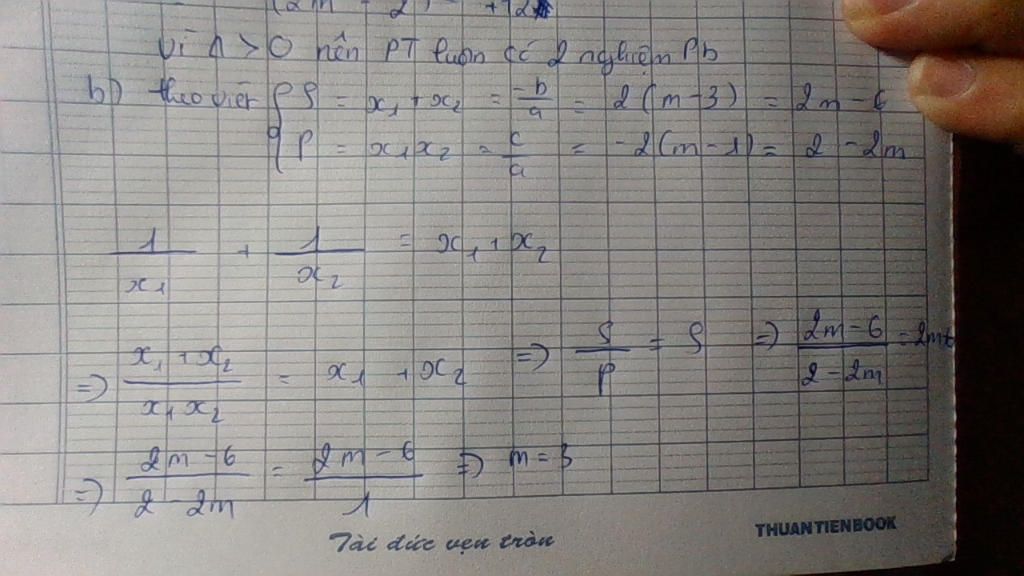 (2m - 2) + 12
Vì Δ > 0 nên PT luôn có 2 nghiệm Pb
b) theo viet { S = x₁ + x₂ = -b/a = 2(m-3) = 2m - 6
P = x₁x₂ = c/a = -2(m-1) = 2 - 2m
1/x₁ + 1/x₂ = x₁ + x₂
=> (x₁ + x₂)/(x₁x₂) = x₁ + x₂ => S/P = S => (2m-6)/(2-2m) = 2m-6
=> (2m-6)/(2-2m) = (2m-6)/1 => m = 3
Tài đức vẹn tròn
THUANTIENBOOK